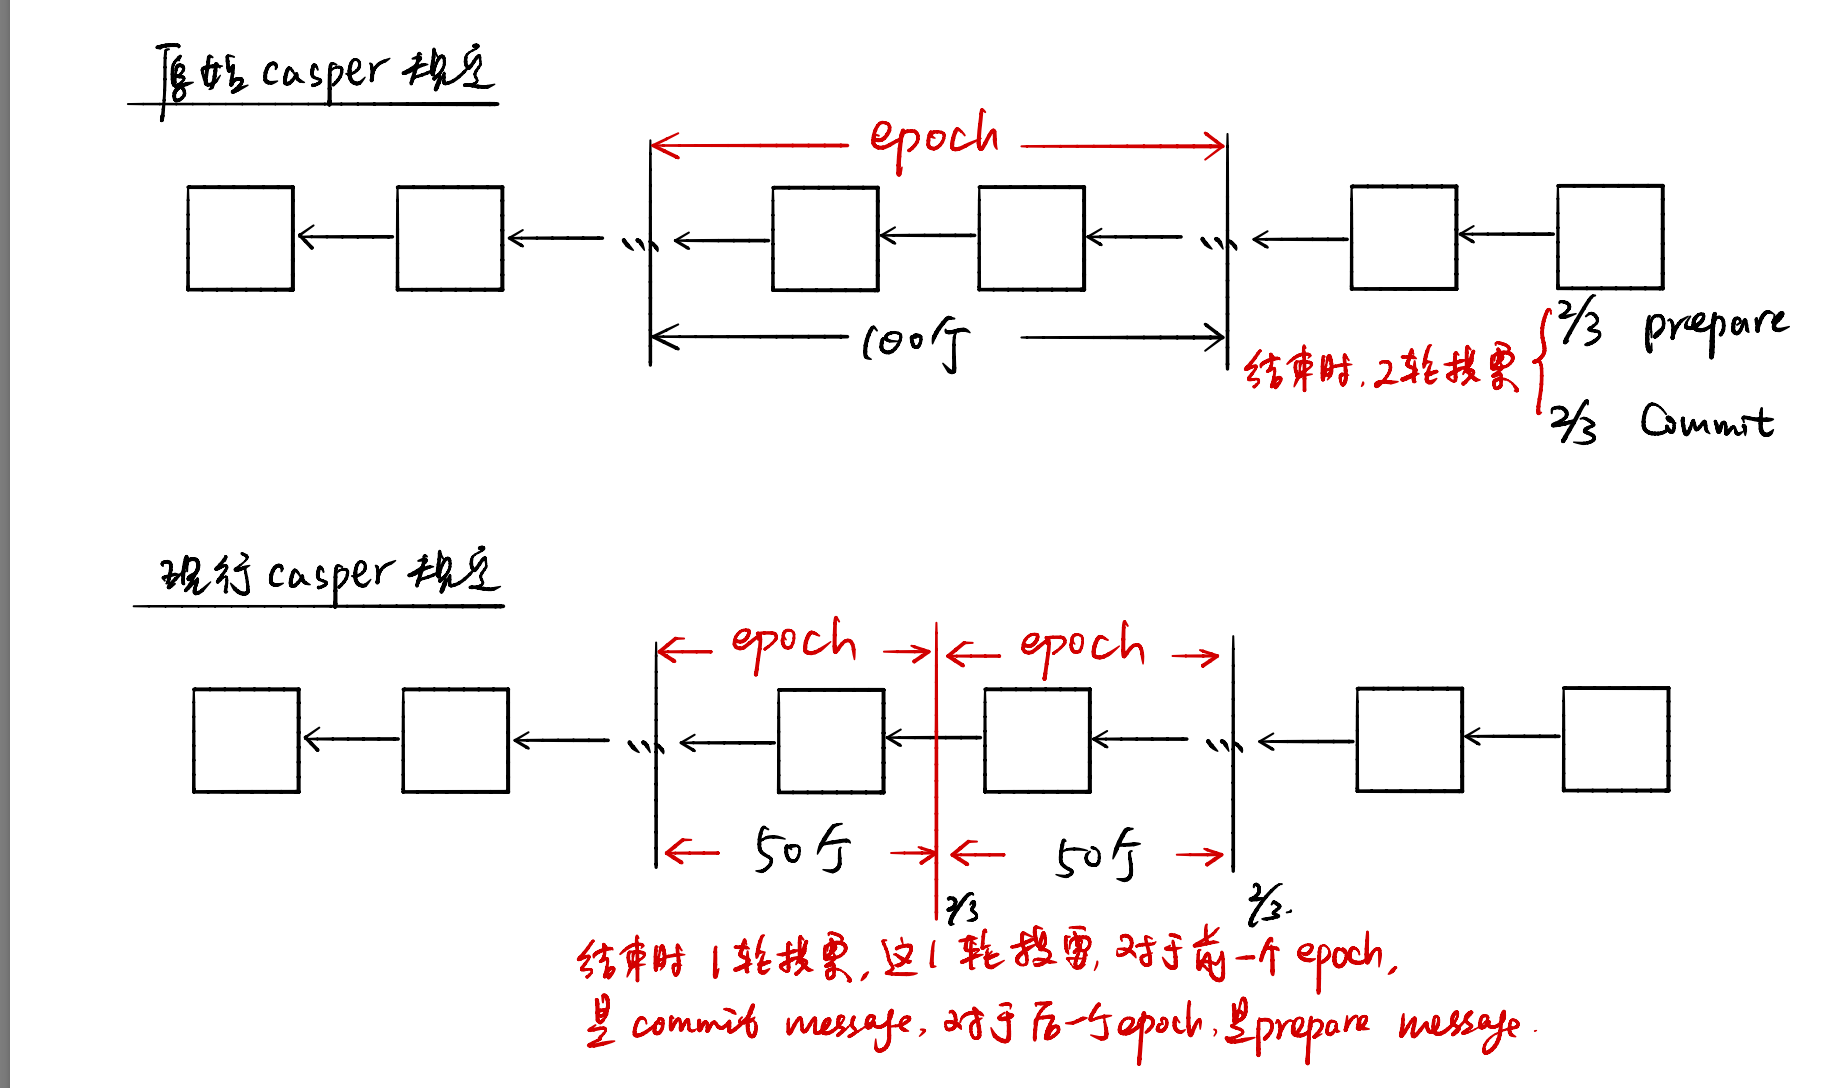 原始casper规定
epoch
100个
2/3 prepare
结束时,2轮投票
2/3 Commit
现行casper规定
epoch epoch
50个 50个
2/3 2/3.
结束时1轮投票,这1轮投票,对于前一个epoch,
是commit message,对于后一个epoch,是prepare message.